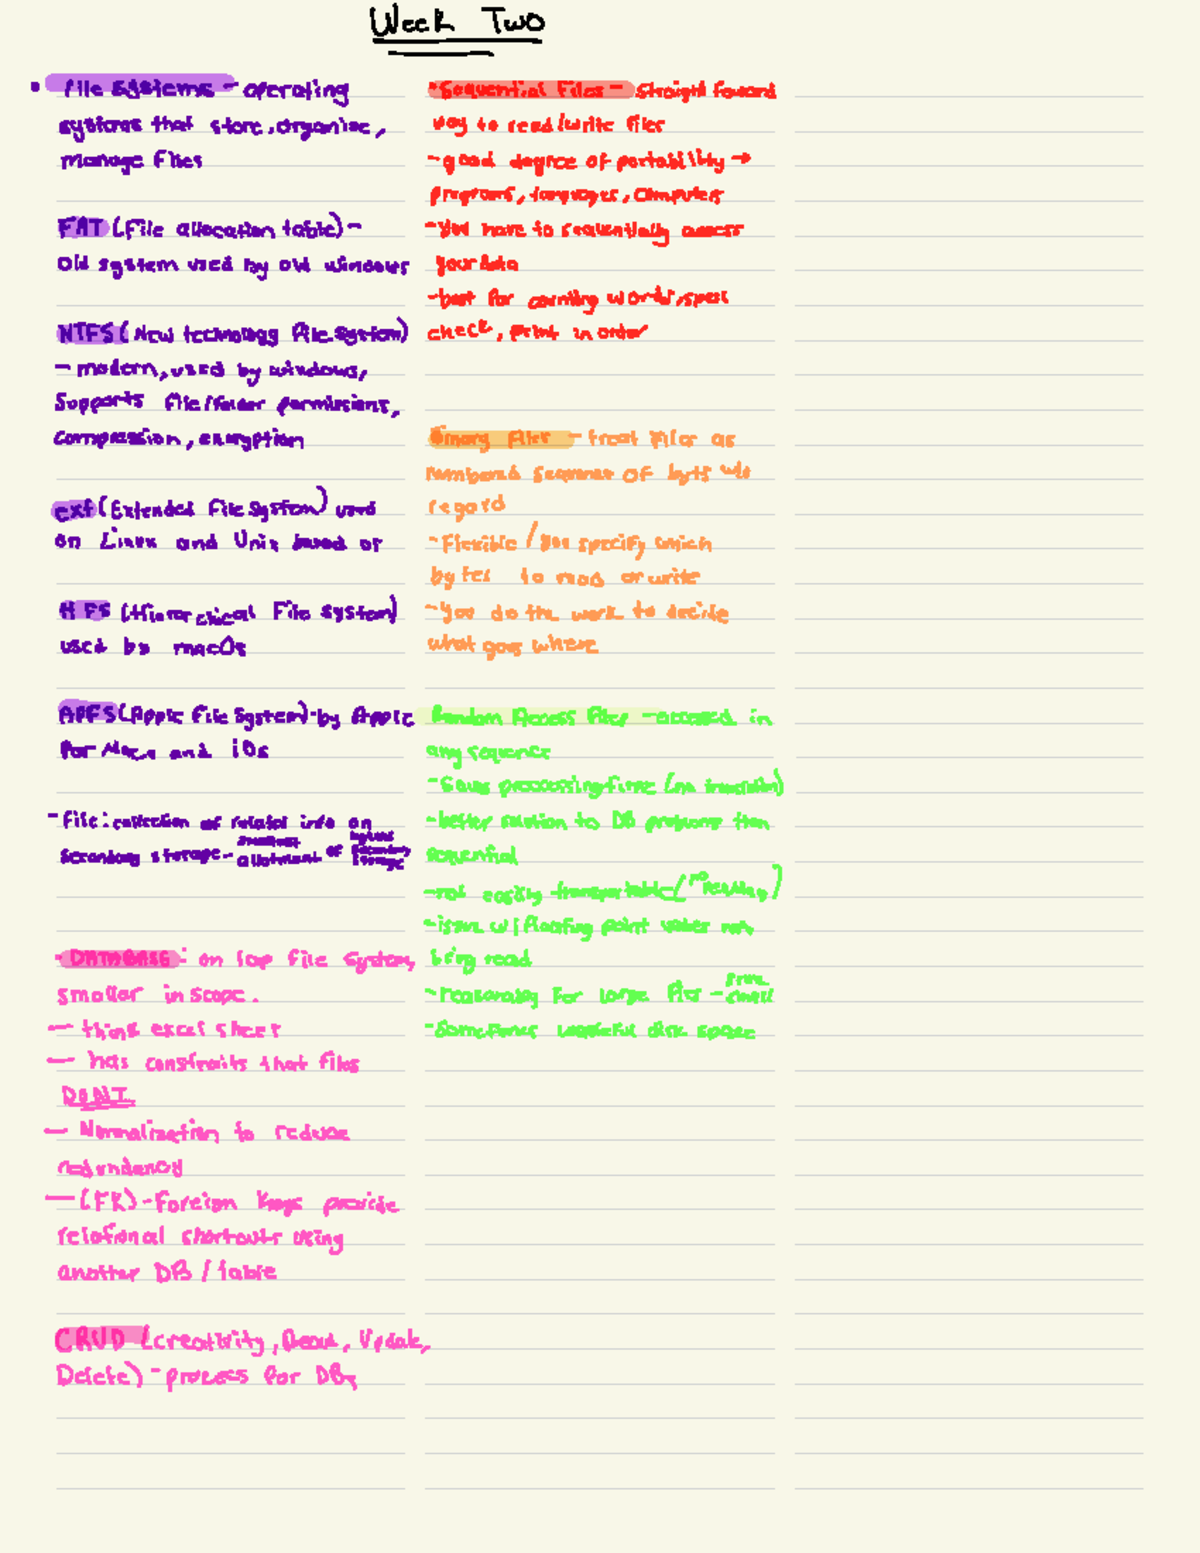 Week Two
• File Systems - operating
systems that store, organise,
manage files
FAT (File allocation table) -
Old system used by old windows
NTFS (New technology File System)
- modern, used by windows,
Supports file/folder permissions,
compression, encryption
ext (Extended File System) used
on Linux and Unix based os
HFS (Hierarchical File system)
used by macOs
APFS (Apple File System) - by Apple
For Macs and iOs
- File: collection of related info on
secondary storage - smallest allotment of logical secondary storage
- DATABASE: on top file system,
smaller in scope.
- think excel sheet
- has constraits that files
DONT
- Normalization to reduce
redundancy
- (FK) - Foreign keys provide
relational shortcuts using
another DB / table
CRUD (creativity, Read, Update,
Delete) - process for DBs
- Sequential Files - Straight foward
way to read/write files
- good degree of portability →
programs, languages, computers
- You have to sequentially access
your data
- best for counting words, spell
check, print in order
Binary Files - treat files as
numbered sequence of byts w/o
regard
- Flexible / you specify which
bytes to read or write
- You do the work to decide
what goes where
Random Access Files - accessed in
any sequence
- Saves processing time (no translation)
- better solution to DB problems than
sequential
- not easily transportable (no
- issue w/ floating point values not
being read
- reasonably for large files - small
- Sometimes wasteful disk space